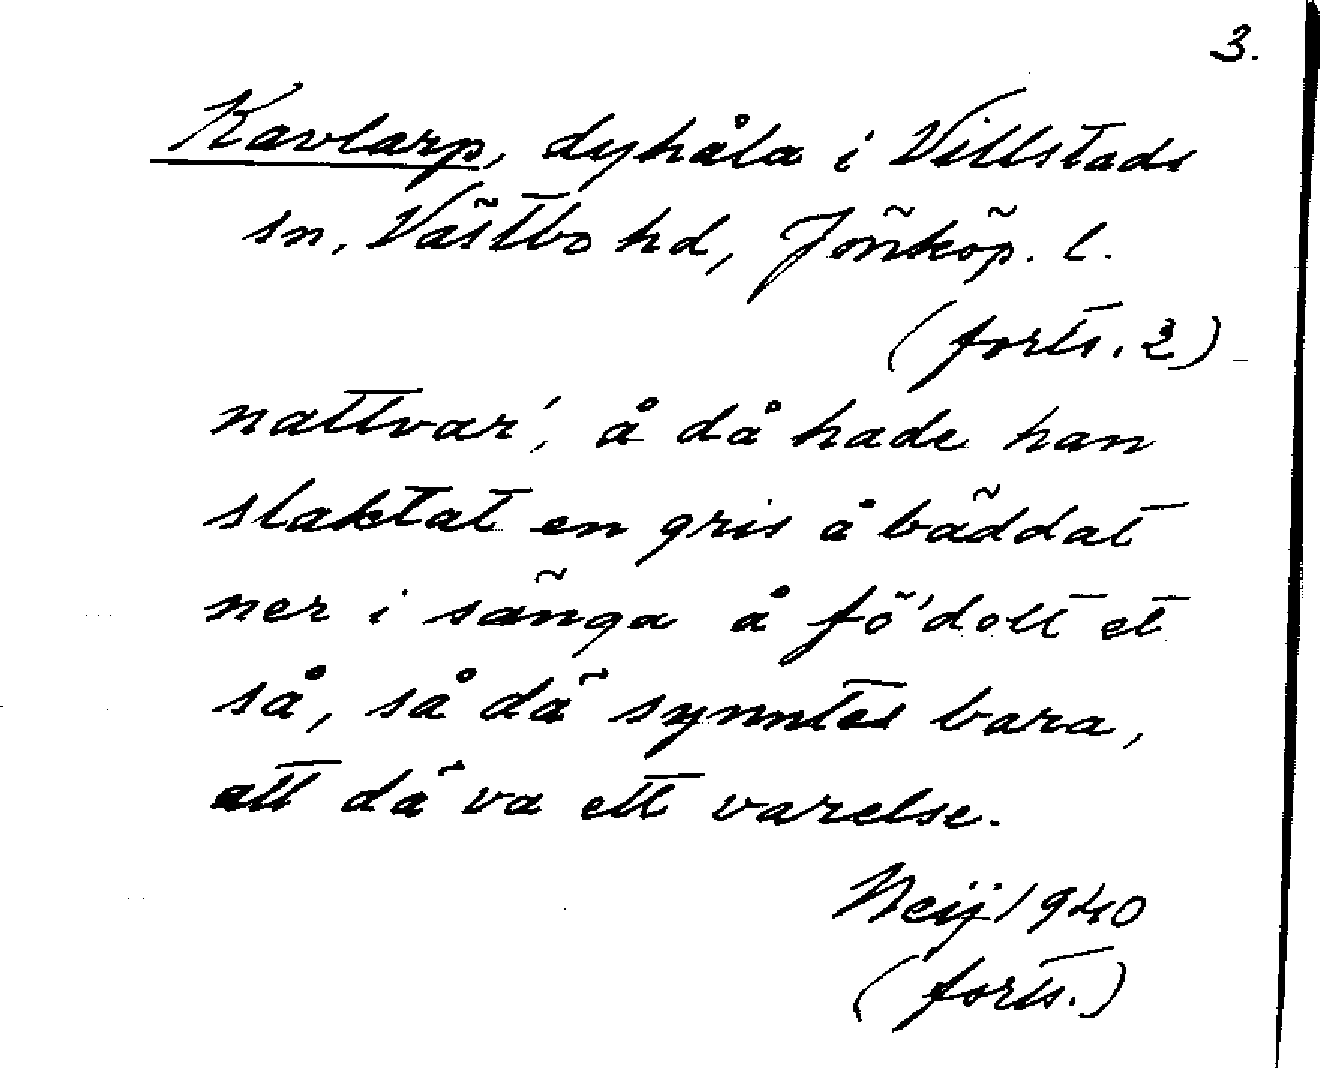 3.
Kavlarp, dyhåla i Villstads
sn, Västbo hd, Jönköp. l.
(forts. 2)
nattvar', å då hade han
slaktat en gris å bäddat
ner i sänga å fö'dolt et
så, så dä synntes bara,
att dä va ett varelse.
Neij 1940
(forts.)